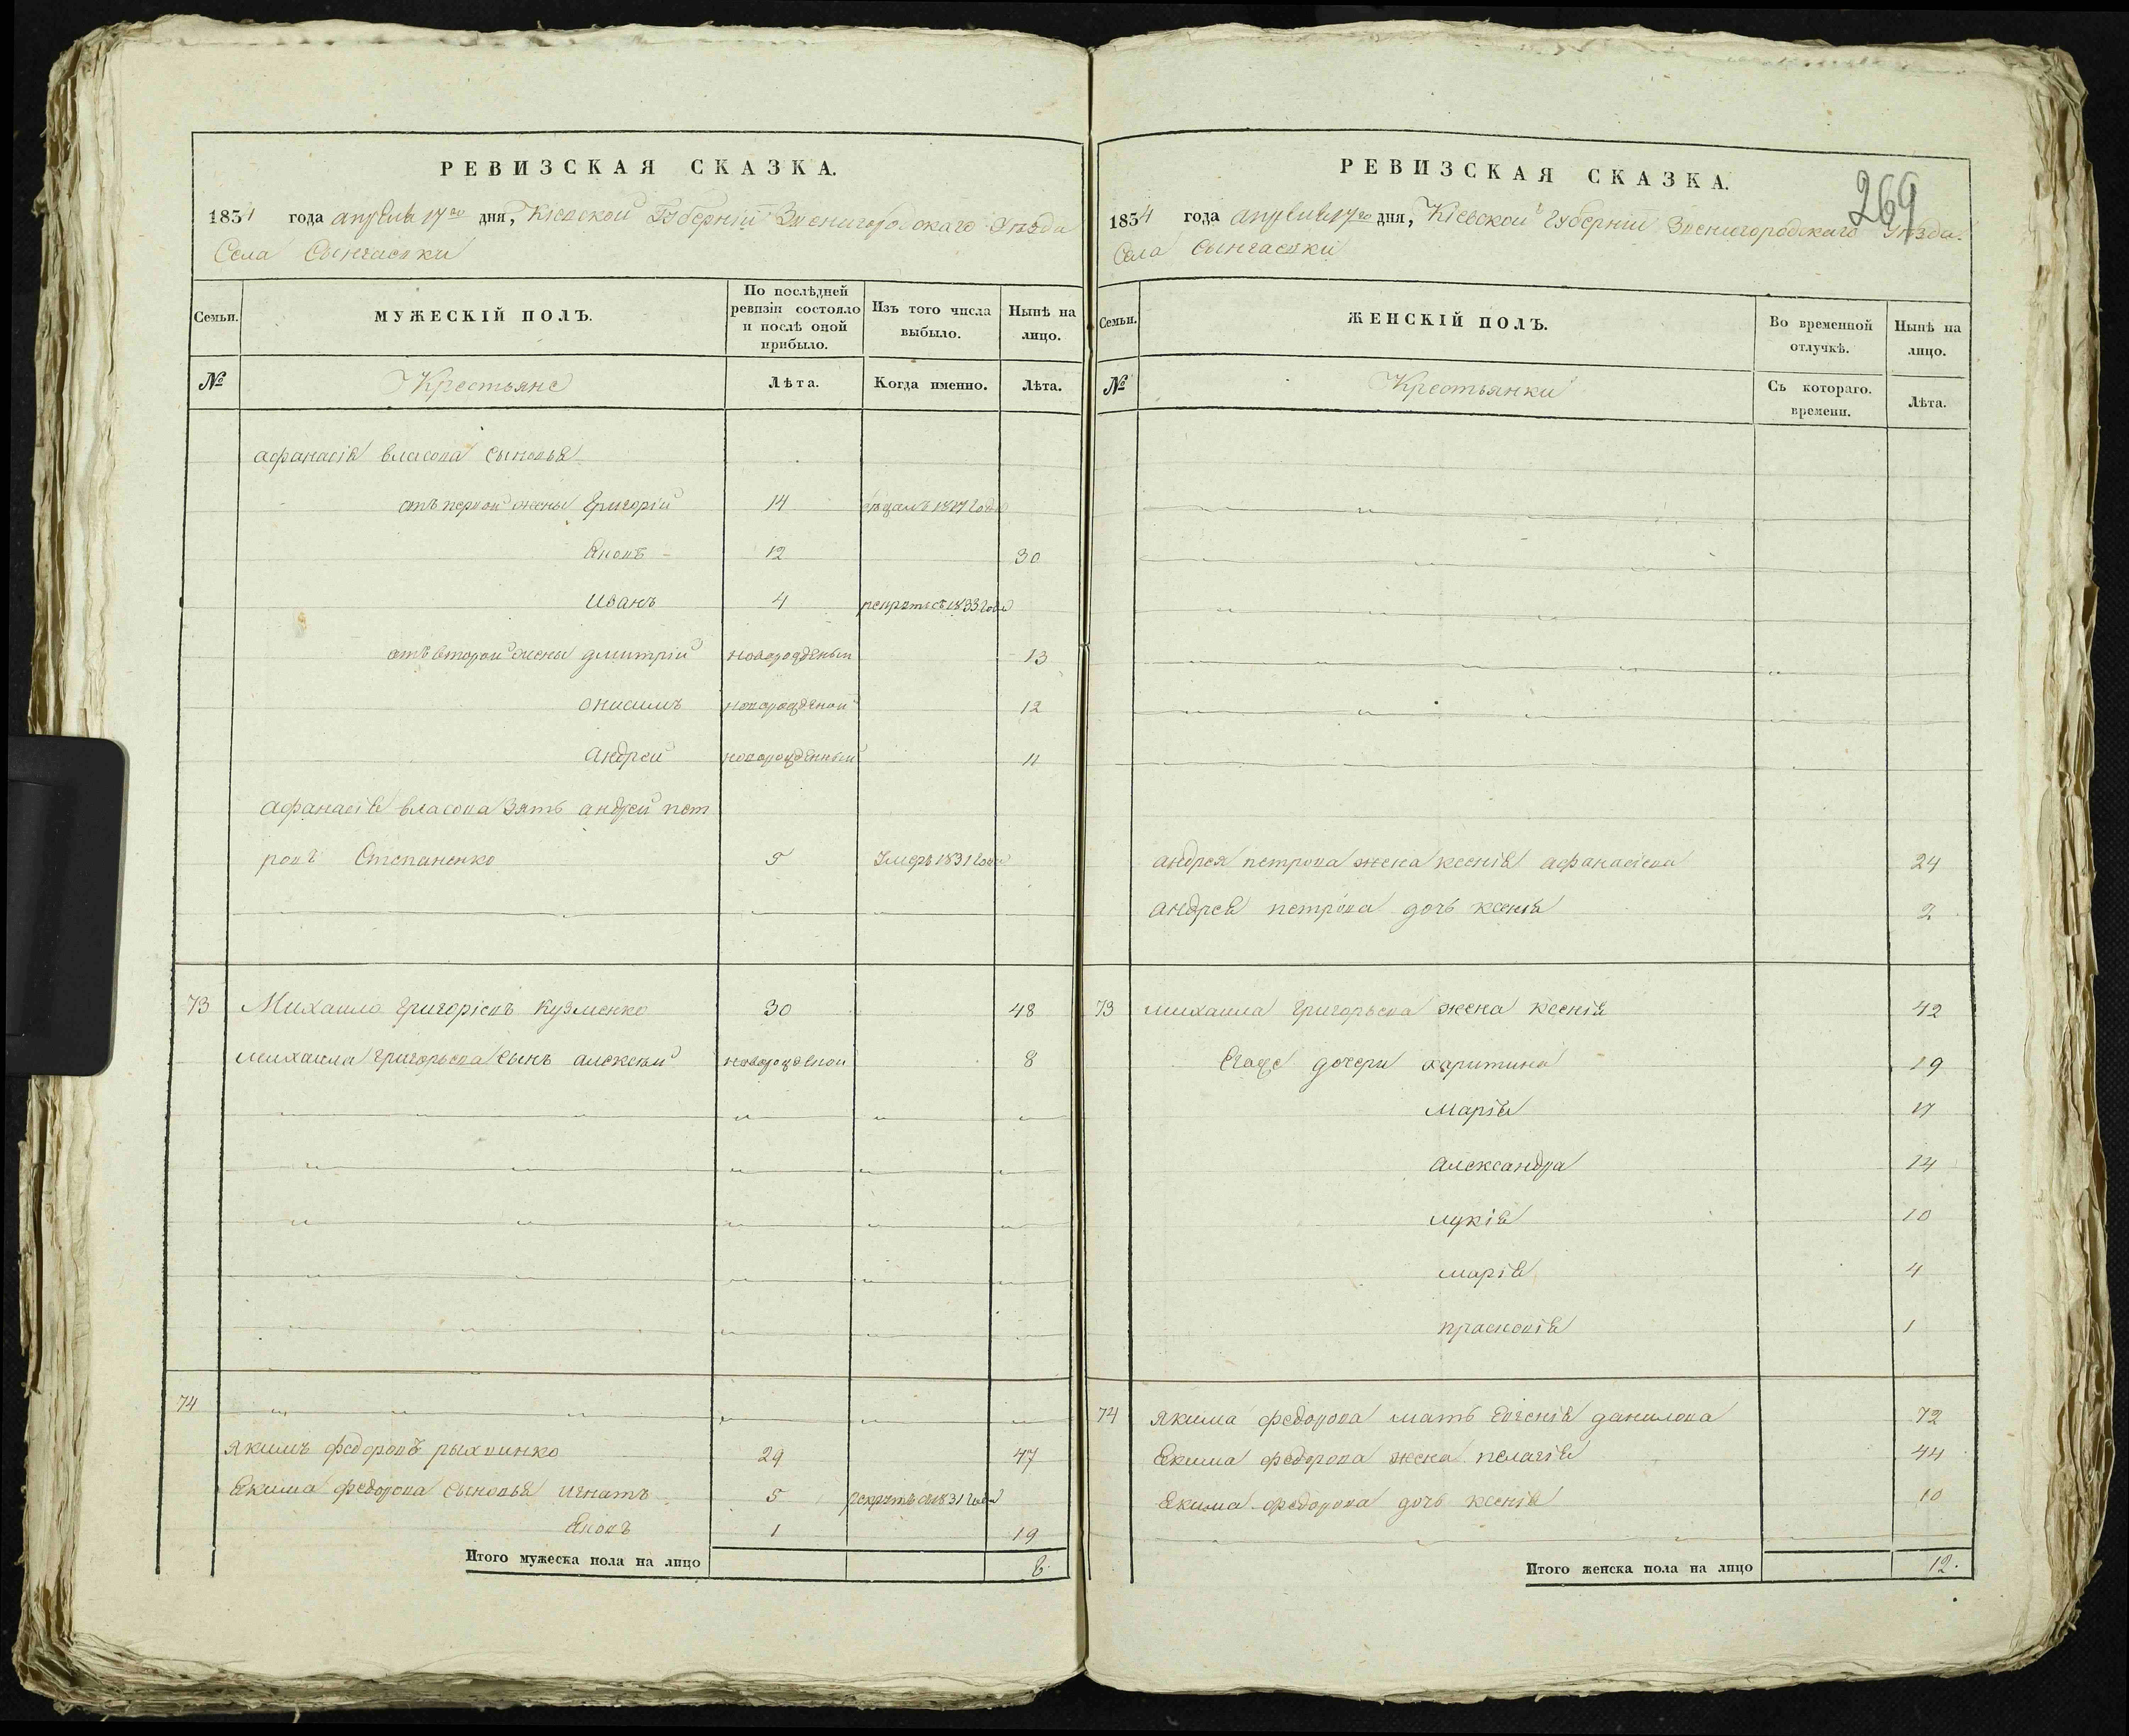 РЕВИЗСКАЯ СКАЗКА.
1834 года апреля 17го дня, Кіевской Губерніи Звенигородскаго Уезда
Села
Семьи. МУЖЕСКІЙ ПОЛЪ. По послѣдней ревизіи состояло и послѣ оной прибыло. Изъ того числа выбыло. Нынѣ на лицо.
№ Крестьяне Лѣта. Когда именно. Лѣта.
афанасія власова сыновья
отъ первой жены григорій 14 1827 года
яковъ 12 30
иванъ 4 рекрутъ съ 1833 года
отъ второй жены дмитрій новорожденый 13
онисимъ новорожденой 12
андрей новорожденный 11
афанасія власова зять андрей пет
ровъ Степаненко 5 Умеръ 1831 года
73 Михайло григоріевъ кузменко 30 48
михаила григорьева сынъ алексѣй новорожденой 8
74
якимъ федоровъ 29 47
екима федорова сыновья игнатъ 5 рекрутъ съ 1831 года
яковъ 1 19
Итого мужеска пола на лицо 8
РЕВИЗСКАЯ СКАЗКА.
269
1834 года апреля 17го дня, Кіевской Губерніи Звенигородскаго Уезда.
Села
Семьи. ЖЕНСКІЙ ПОЛЪ. Во временной отлучкѣ. Нынѣ на лицо.
№ Крестьянки Съ котораго. времени. Лѣта.
андрея петрова жена ксенія афанасіева 24
андрея петрова дочь ксенія 2
73 михаила григорьева жена ксенія 42
Егоже дочери харитина 19
марія 17
александра 14
лукія 10
марія 4
прасковія 1
74 якима федорова мать евгенія данилова 72
екима федорова жена пелагія 44
екима федорова дочь ксенія 10
Итого женска пола на лицо 12.